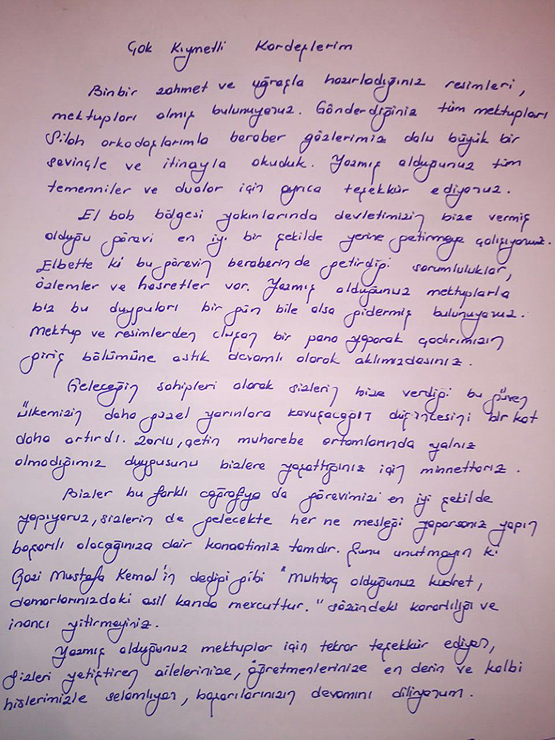 Çok Kıymetli Kardeşlerim
Binbir zahmet ve uğraşla hazırladığınız resimleri,
mektupları almış bulunuyoruz. Gönderdiğiniz tüm mektupları
Silah arkadaşlarımla beraber gözlerimiz dolu büyük bir
sevinçle ve itinayla okuduk. Yazmış olduğunuz tüm
temenniler ve dualar için ayrıca teşekkür ediyoruz.
El bab bölgesi yakınlarında devletimizin bize vermiş
olduğu görevi en iyi bir şekilde yerine getirmeye çalışıyoruz.
Elbette ki bu görevin beraberinde getirdiği sorumluluklar,
özlemler ve hasretler var. Yazmış olduğunuz mektuplarla
biz bu duyguları bir gün bile olsa gidermiş bulunuyoruz.
Mektup ve resimlerden oluşan bir pano yaparak çadırımızın
giriş bölümüne astık devamlı olarak aklımızdasınız.
Geleceğin sahipleri olarak sizlerin bize verdiği bu güven
ülkemizin daha güzel yarınlara kavuşacağın düşüncesini bir kat
daha artırdı. Zorlu, çetin muharebe ortamlarında yalnız
olmadığımız duygusunu bizlere yaşattığınız için minnettarız.
Bizler bu farklı coğrafya da görevimizi en iyi şekilde
yapıyoruz, sizlerin de gelecekte her ne mesleği yaparsanız yapın
başarılı olacağınıza dair kanaatimiz tamdır. Şunu unutmayın ki
Gazi Mustafa Kemal'in dediği gibi "Muhtaç olduğunuz kudret,
damarlarınızdaki asil kanda mevcuttur." sözündeki kararlılığı ve
inancı yitirmeyiniz.
Yazmış olduğunuz mektuplar için tekrar teşekkür ediyor,
Sizleri yetiştiren ailelerinize, öğretmenlerinize en derin ve kalbi
hislerimizle selamlıyor, başarılarınızın devamını diliyorum.